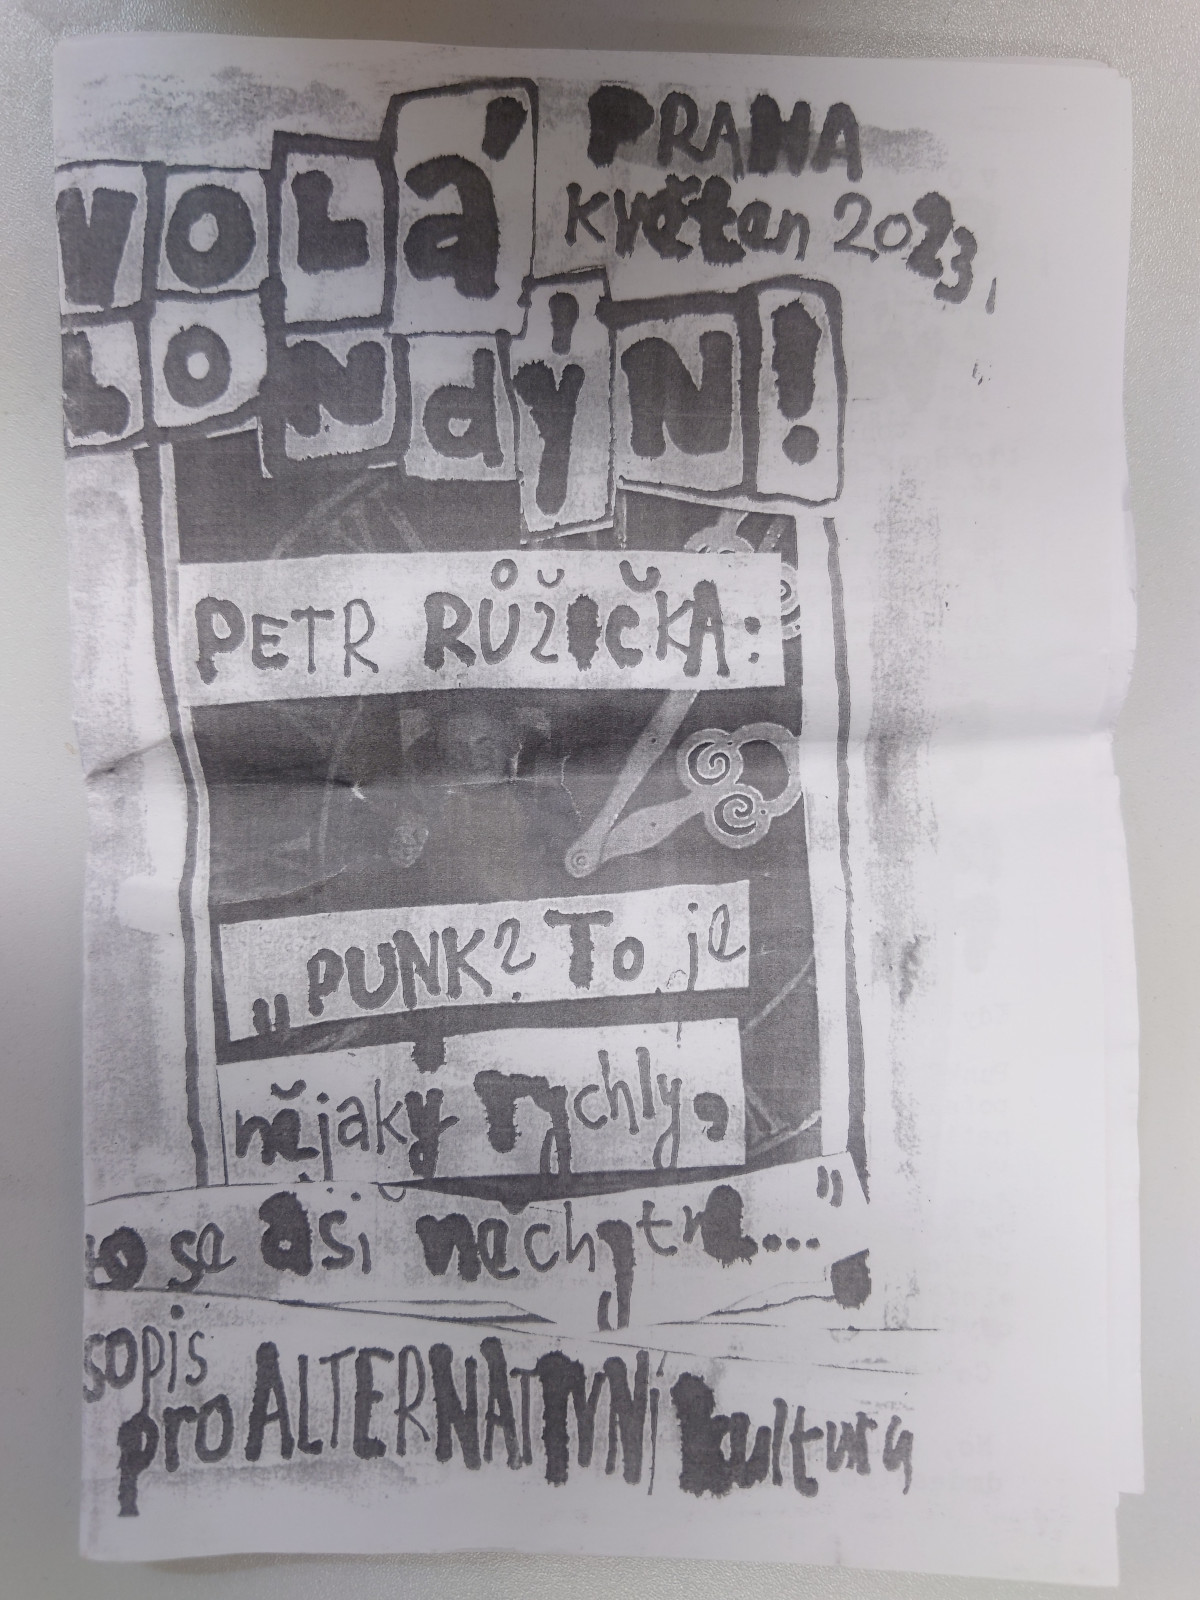 VOLÁ
LONDÝN!
PRAHA
květen 2023,
PETR RŮŽIČKA:
„PUNK? To je
nějaký rychlý,
to se asi nechytne..."
sopis
pro ALTERNATIVNí kulturu